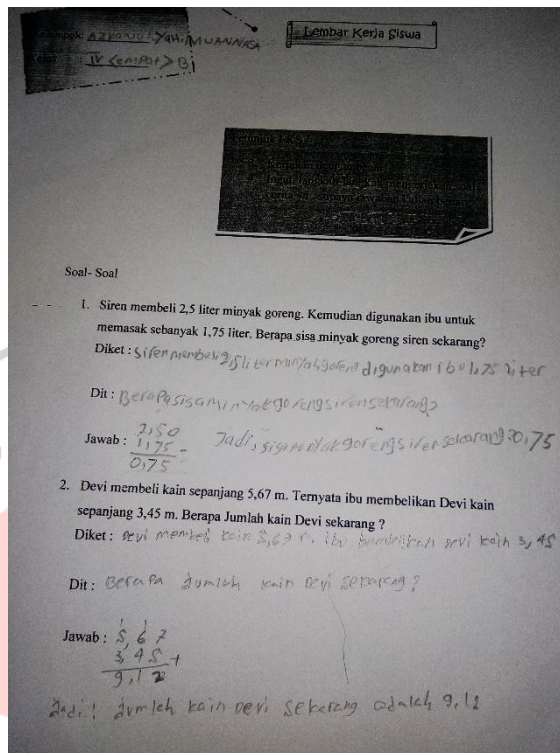 Lembar Kerja Siswa
IV <emPat> B
Soal- Soal
1. Siren membeli 2,5 liter minyak goreng. Kemudian digunakan ibu untuk
memasak sebanyak 1,75 liter. Berapa sisa minyak goreng siren sekarang?
Diket : Siren membeli 2,5 liter minyak goreng digunakan ibu 1,75 liter
Dit : Berapa sisa minyak goreng siren sekarang?
Jawab : 2,50
1,75 -
0,75
Jadi, sisa minyak goreng siren sekarang 0,75
2. Devi membeli kain sepanjang 5,67 m. Ternyata ibu membelikan Devi kain
sepanjang 3,45 m. Berapa Jumlah kain Devi sekarang ?
Diket : Devi membeli kain 5,67 m. ibu membelikan Devi kain 3,45
Dit : Berapa Jumlah kain Devi sekarang ?
Jawab : 5,67
3,45 +
9,12
Jadi! Jumlah kain Devi sekarang adalah 9,12